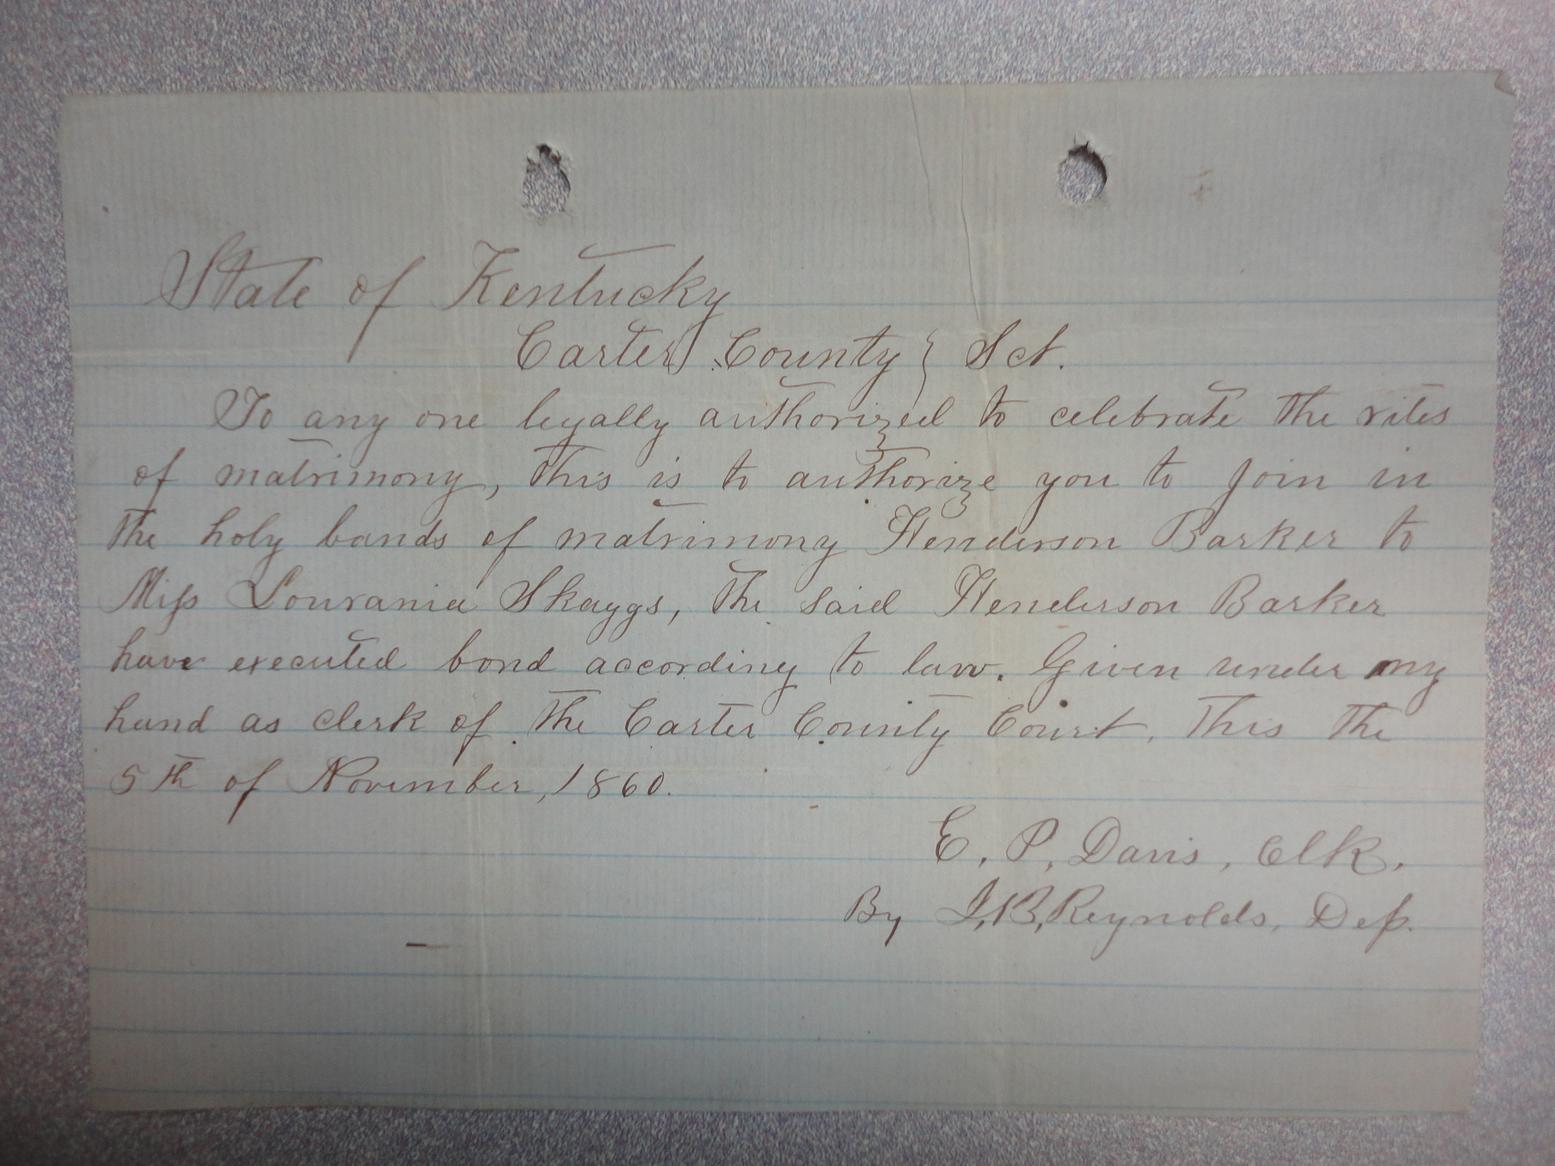 State of Kentucky
Carter County } Sct.
To any one legally authorized to celebrate the rites
of matrimony, this is to authorize you to join in
the holy bands of matrimony Henderson Barker to
Miss Lourania Skaggs, the said Henderson Barker
have executed bond according to law. Given under my
hand as clerk of the Carter County Court. This the
5th of November, 1860.
E. P. Davis, Clk.
By J. B. Reynolds, Dep.